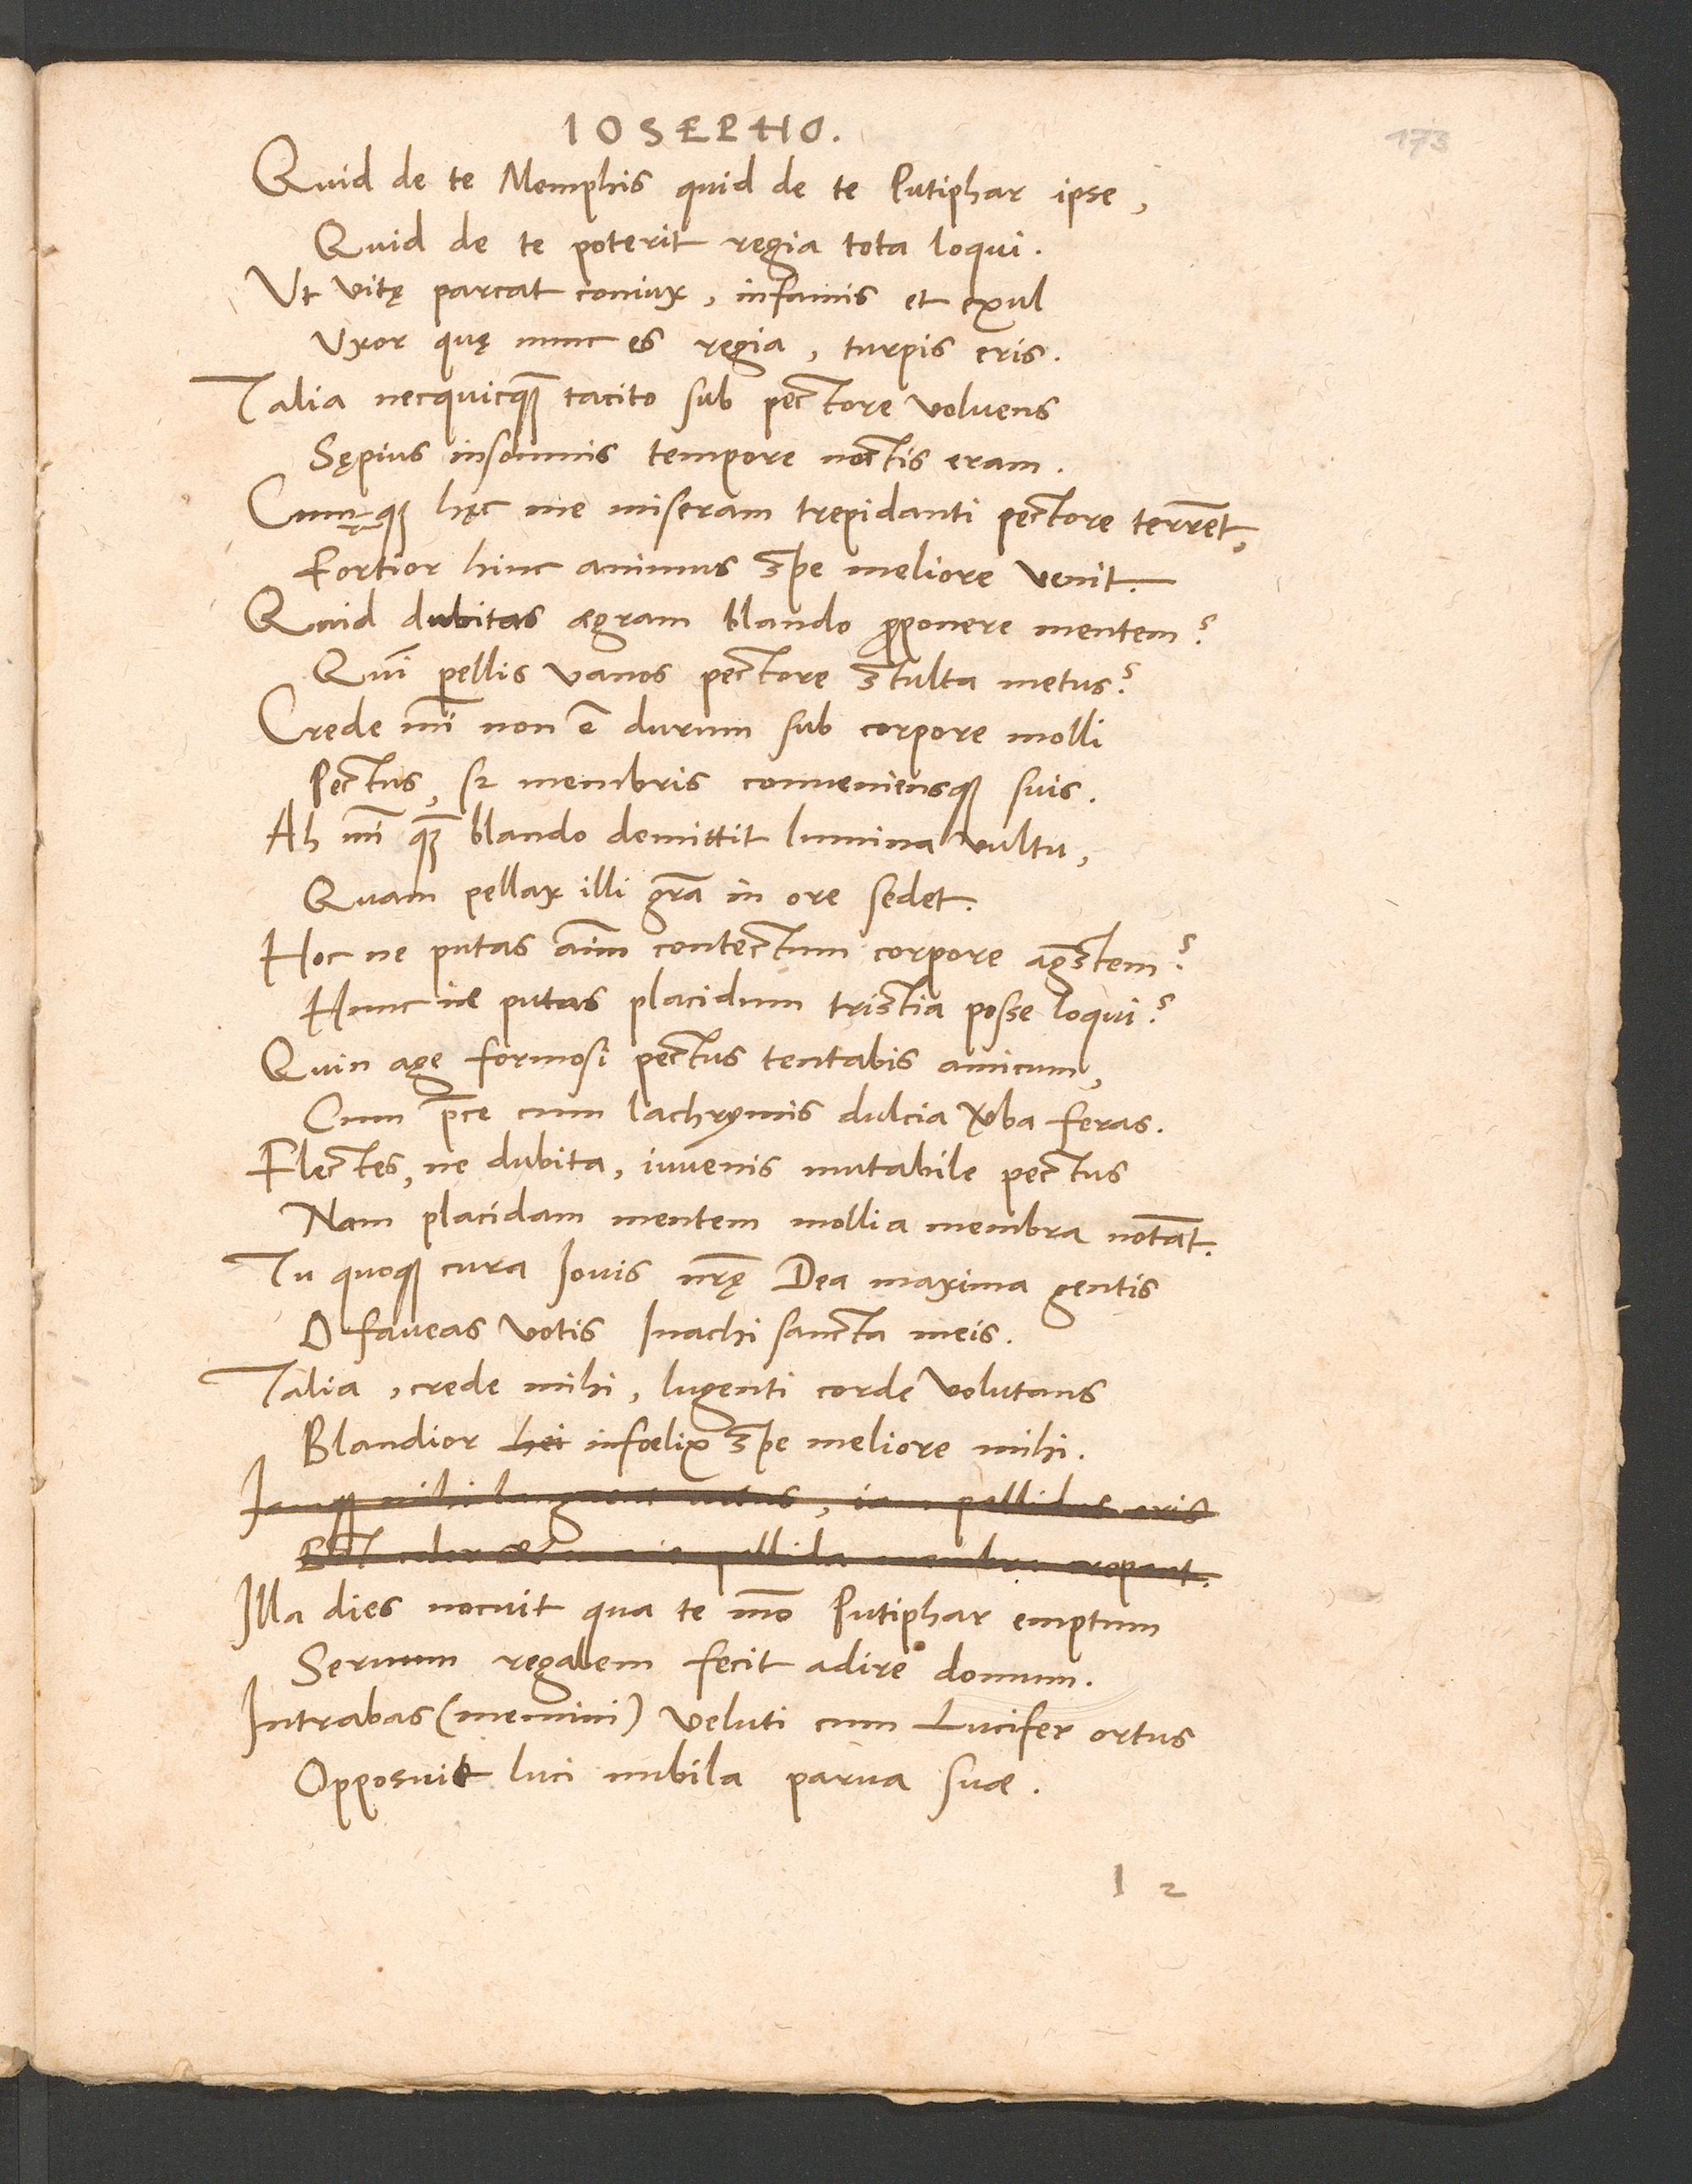 IOSEPHO.
173
Quid de te Memphis quid de te Putiphar ipse,
Quid de te poterit regia tota loqui.
Ut vitę parcat coniux, infamis et exul
Uxor quę nunc es regia, turpis eris.
Talia necquicq̃ tacito sub pectore voluens
Sępius insomnis tempore noctis eram.
Cumq; hęc me miseram trepidanti pectore terrẽt,
Fortior hinc animus spe meliore venit.
Quid dubitas ægram blando ꝓponere mentem?
Quĩ pellis vanos pectore stulta metus?
Crede mĩ non ẽ durum sub corpore molli
Pectus, sꝫ membris conueniensq; suis.
Ah mĩ q̃ blando demittit lumina vultu,
Quam pellax illi grã in ore sedet.
Hoc ne putas aĩm contectum corpore agr̃stem?
Hunc ne putas placidum tristia posse loqui?
Quin age formosi pectus tentabis amicum,
Cum p̃ce cum lachrymis dulcia v̾ba feras.
Flectes, ne dubita, iuvenis mutabile pectus
Nam placidam mentem mollia membra notãt.
Tu quoq; cura Iovis nrẽ Dea maxima gentis
O faveas votis Inachi sancta meis.
Talia, crede mihi, lugenti corde volutans
Blandior hei infœlix spe meliore mihi.
Iamq; mihi languent artus, iam pallidus oris
pallida membra
Illa dies nocuit qua te mõ Putiphar emptum
Seruum regalem fecit adire domum.
Intrabas (memini) veluti cum Lucifer ortus
Opposuit luci nubila parua suæ.
I 2